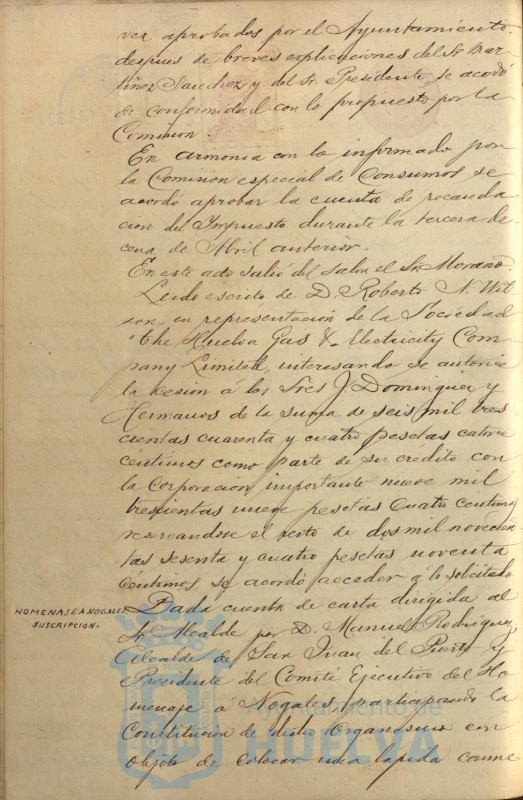 ver aprobados por el Ayuntamiento,
despues de breves esplicaciones del Sr Mar-
tinez Sanchez y del Sr. Presidente, se acordó
de conformidad con lo propuesto por la
Comision.
En armonia con lo informado por
la Comision especial de Consumos se
acordó aprobar la cuenta de recauda
cion del Impuesto durante la tercera de-
cena de Abril anterior.
En este acto salió del salon el Sr. Morano.
Leido escrito de D. Roberto N. Wil
son, en representacion de la Sociedad
"The Huelva Gas & Electricity Com
pany Limited, interesando se autorice
la cesion á los Sres J. Dominguez y
Hermanos de la suma de seis mil tres
cientas cuarenta y cuatro pesetas catorce
centimos como parte de su credito con
la Corporacion importante nueve mil
trescientas nueve pesetas cuatro centimos
reservandose el resto de dos mil novecien
tas sesenta y cuatro pesetas noventa
céntimos, se acordó acceder á lo solicitado
HOMENAJE A NOGALES
SUSCRIPCION.
Dada cuenta de carta dirigida al
Sr. Alcalde por D. Manuel Rodriguez,
Alcalde de San Juan del Puerto y
Presidente del Comité Ejecutivo del Ho
menaje á Nogales, participando la
Constitucion de dicho Organismo con
objeto de colocar una lápida conme
Ayuntamiento de
HUELVA